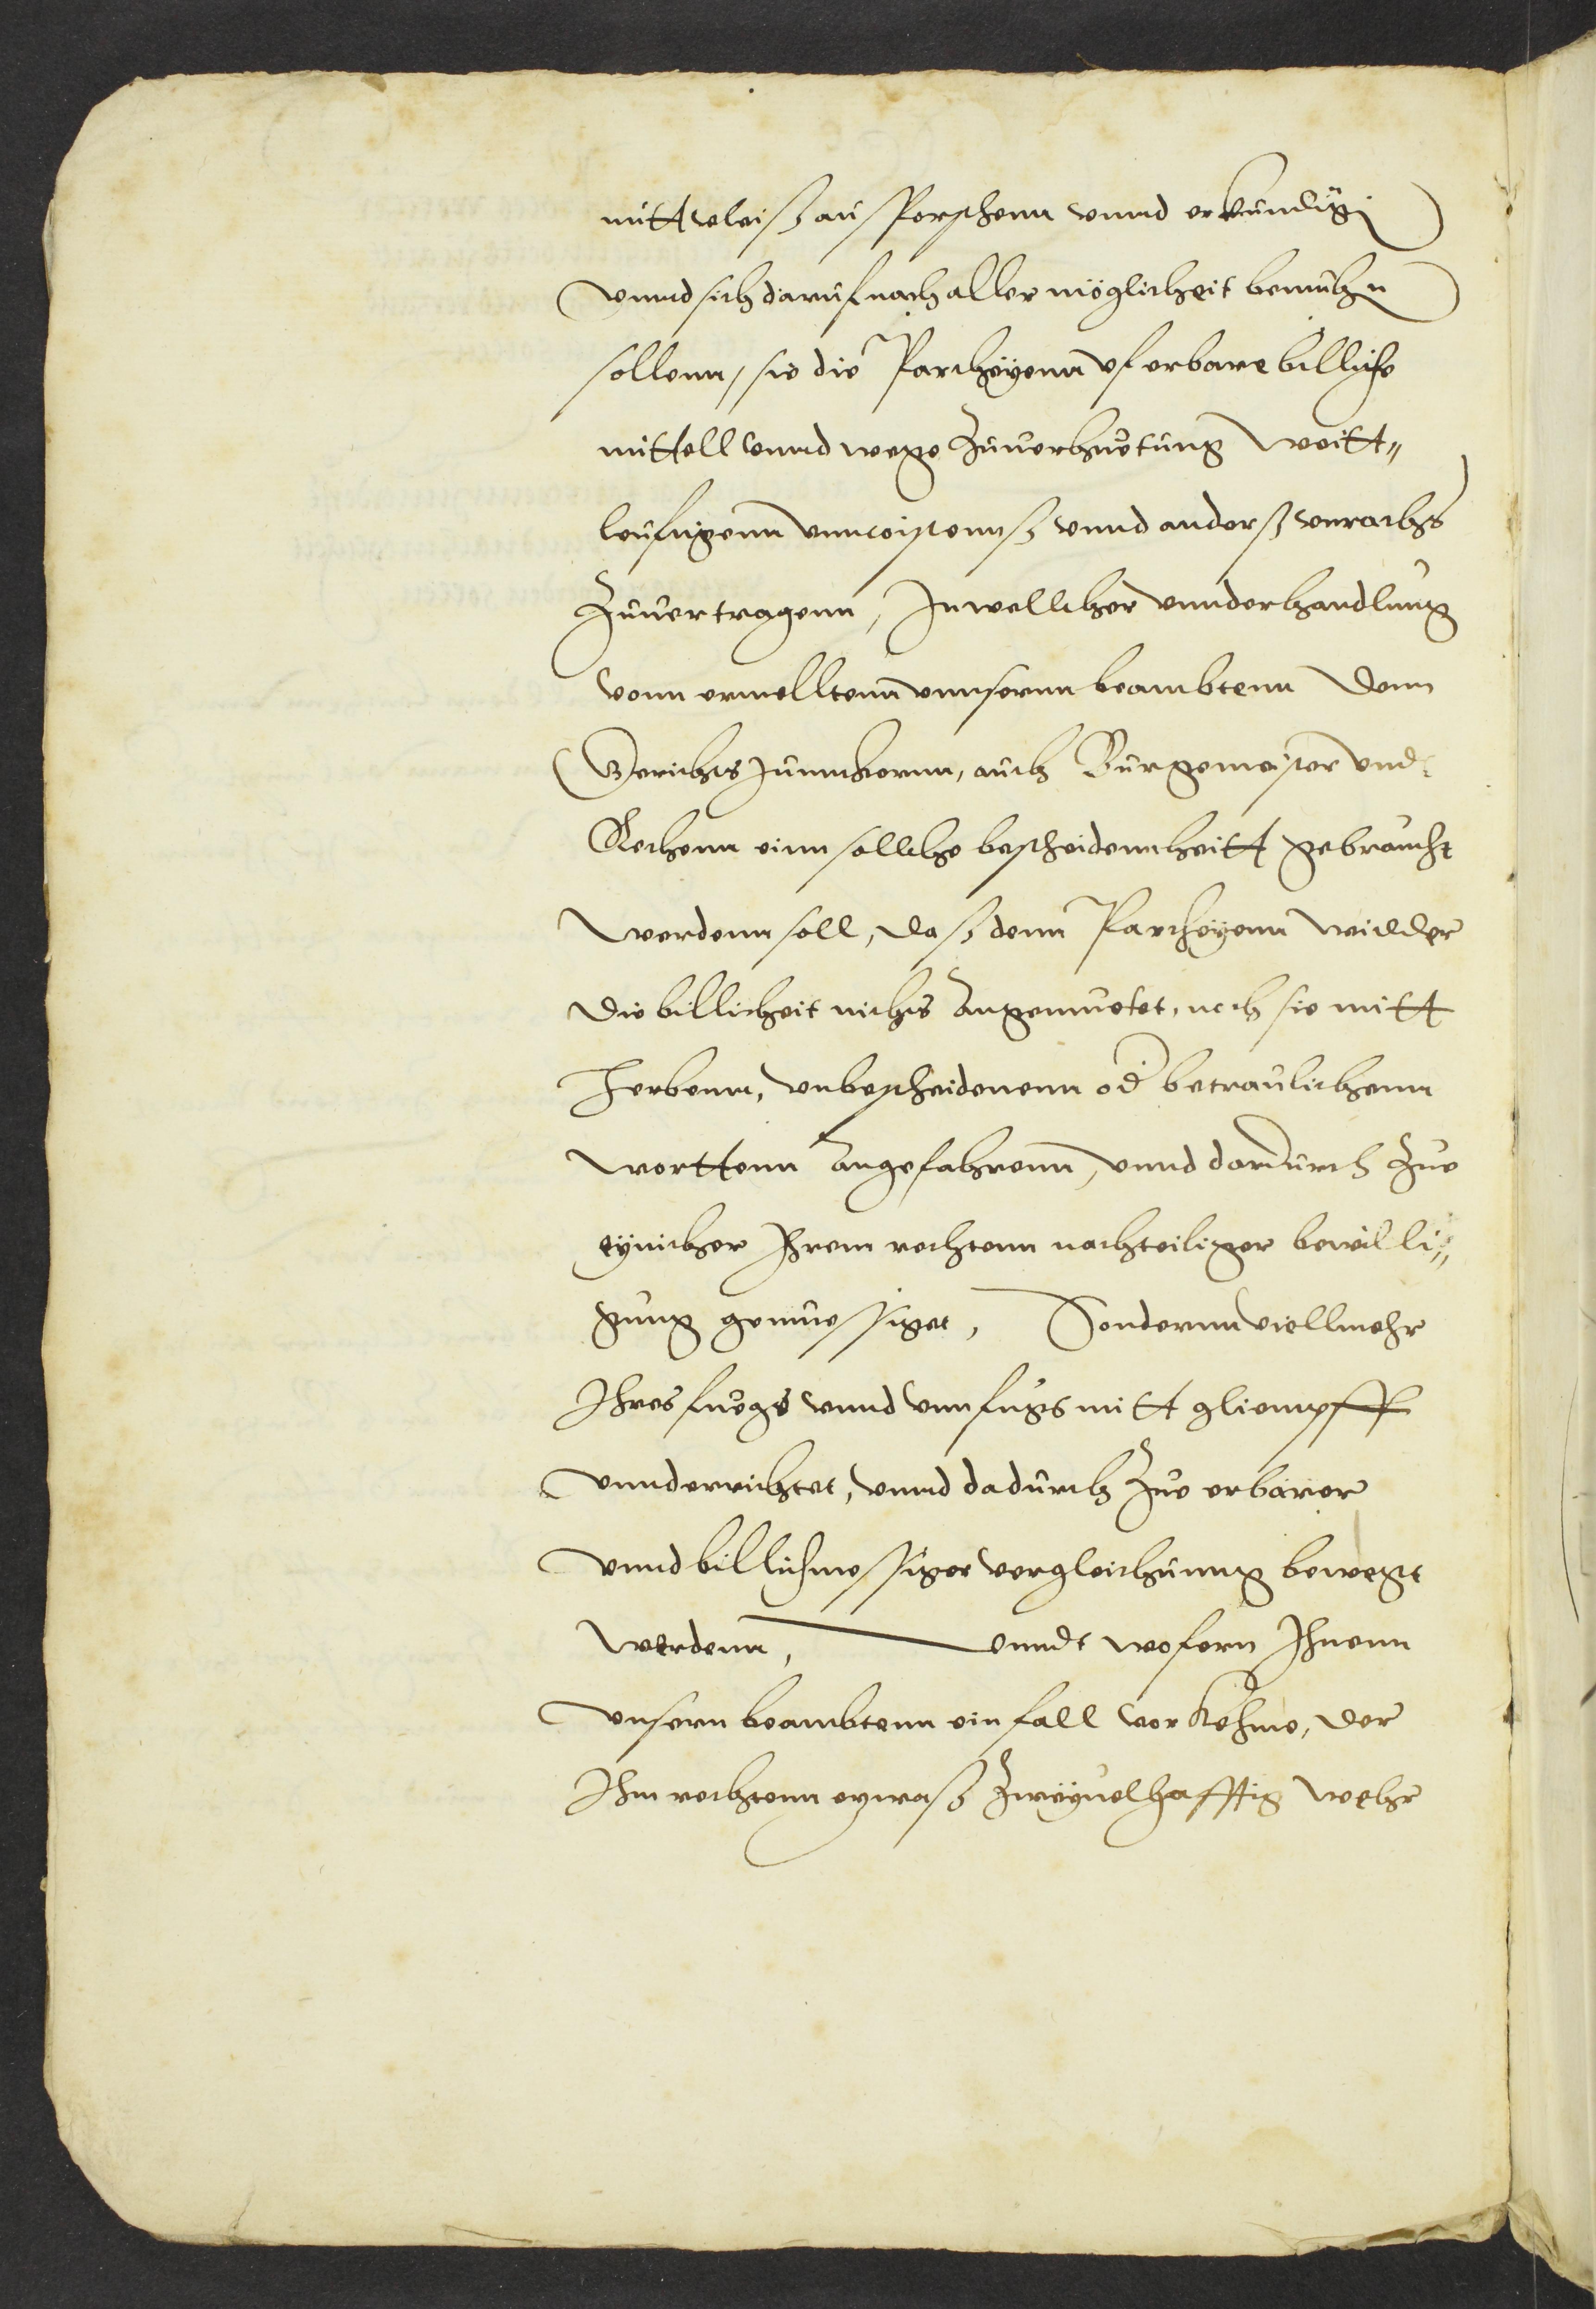 mitt vleiß ausforschenn vnnd erkundig(
vnnd sich daruf nach aller möglicheit bemühen
sollenn, sie die Partheyenn vf erbare billiche
mittell vnnd wege Zuuerhuetung weitt„
leufigenn vnncostenns vnnd anders vnrahts
Zuuertragenn, Inwellcher vnnderhandlung
vonn ermelltenn vnnsernn beambtenn denn
Gerichts Junnckernn, auch Burgemeister vnd
Rethenn einn sollche bescheidennheitt gebraucht
werdenn soll, daß denn Partheyenn widder
die billicheit nichts angemuetet, noch sie mitt
herbenn, vnbescheidenenn od betraulichenn
worttenn angefahrenn, vnnd dardurch Zue
eynicher Ihrem rechtenn nachteiliger bewilli„
gung genuessiget, Sondernn viellmehr
Ihres fuegs vnnd vnnfugs mitt gliempff
vnnderrichtet, vnnd dadurch Zue erbarer
vnnd billichmessiger vergleichunng bewegt
werdenn, vnndt wofern Ihnenn
vnsern beambtenn ein fall vorkehme, der
Ihm rechtenn etwaß Zweyuelhafftig wehr